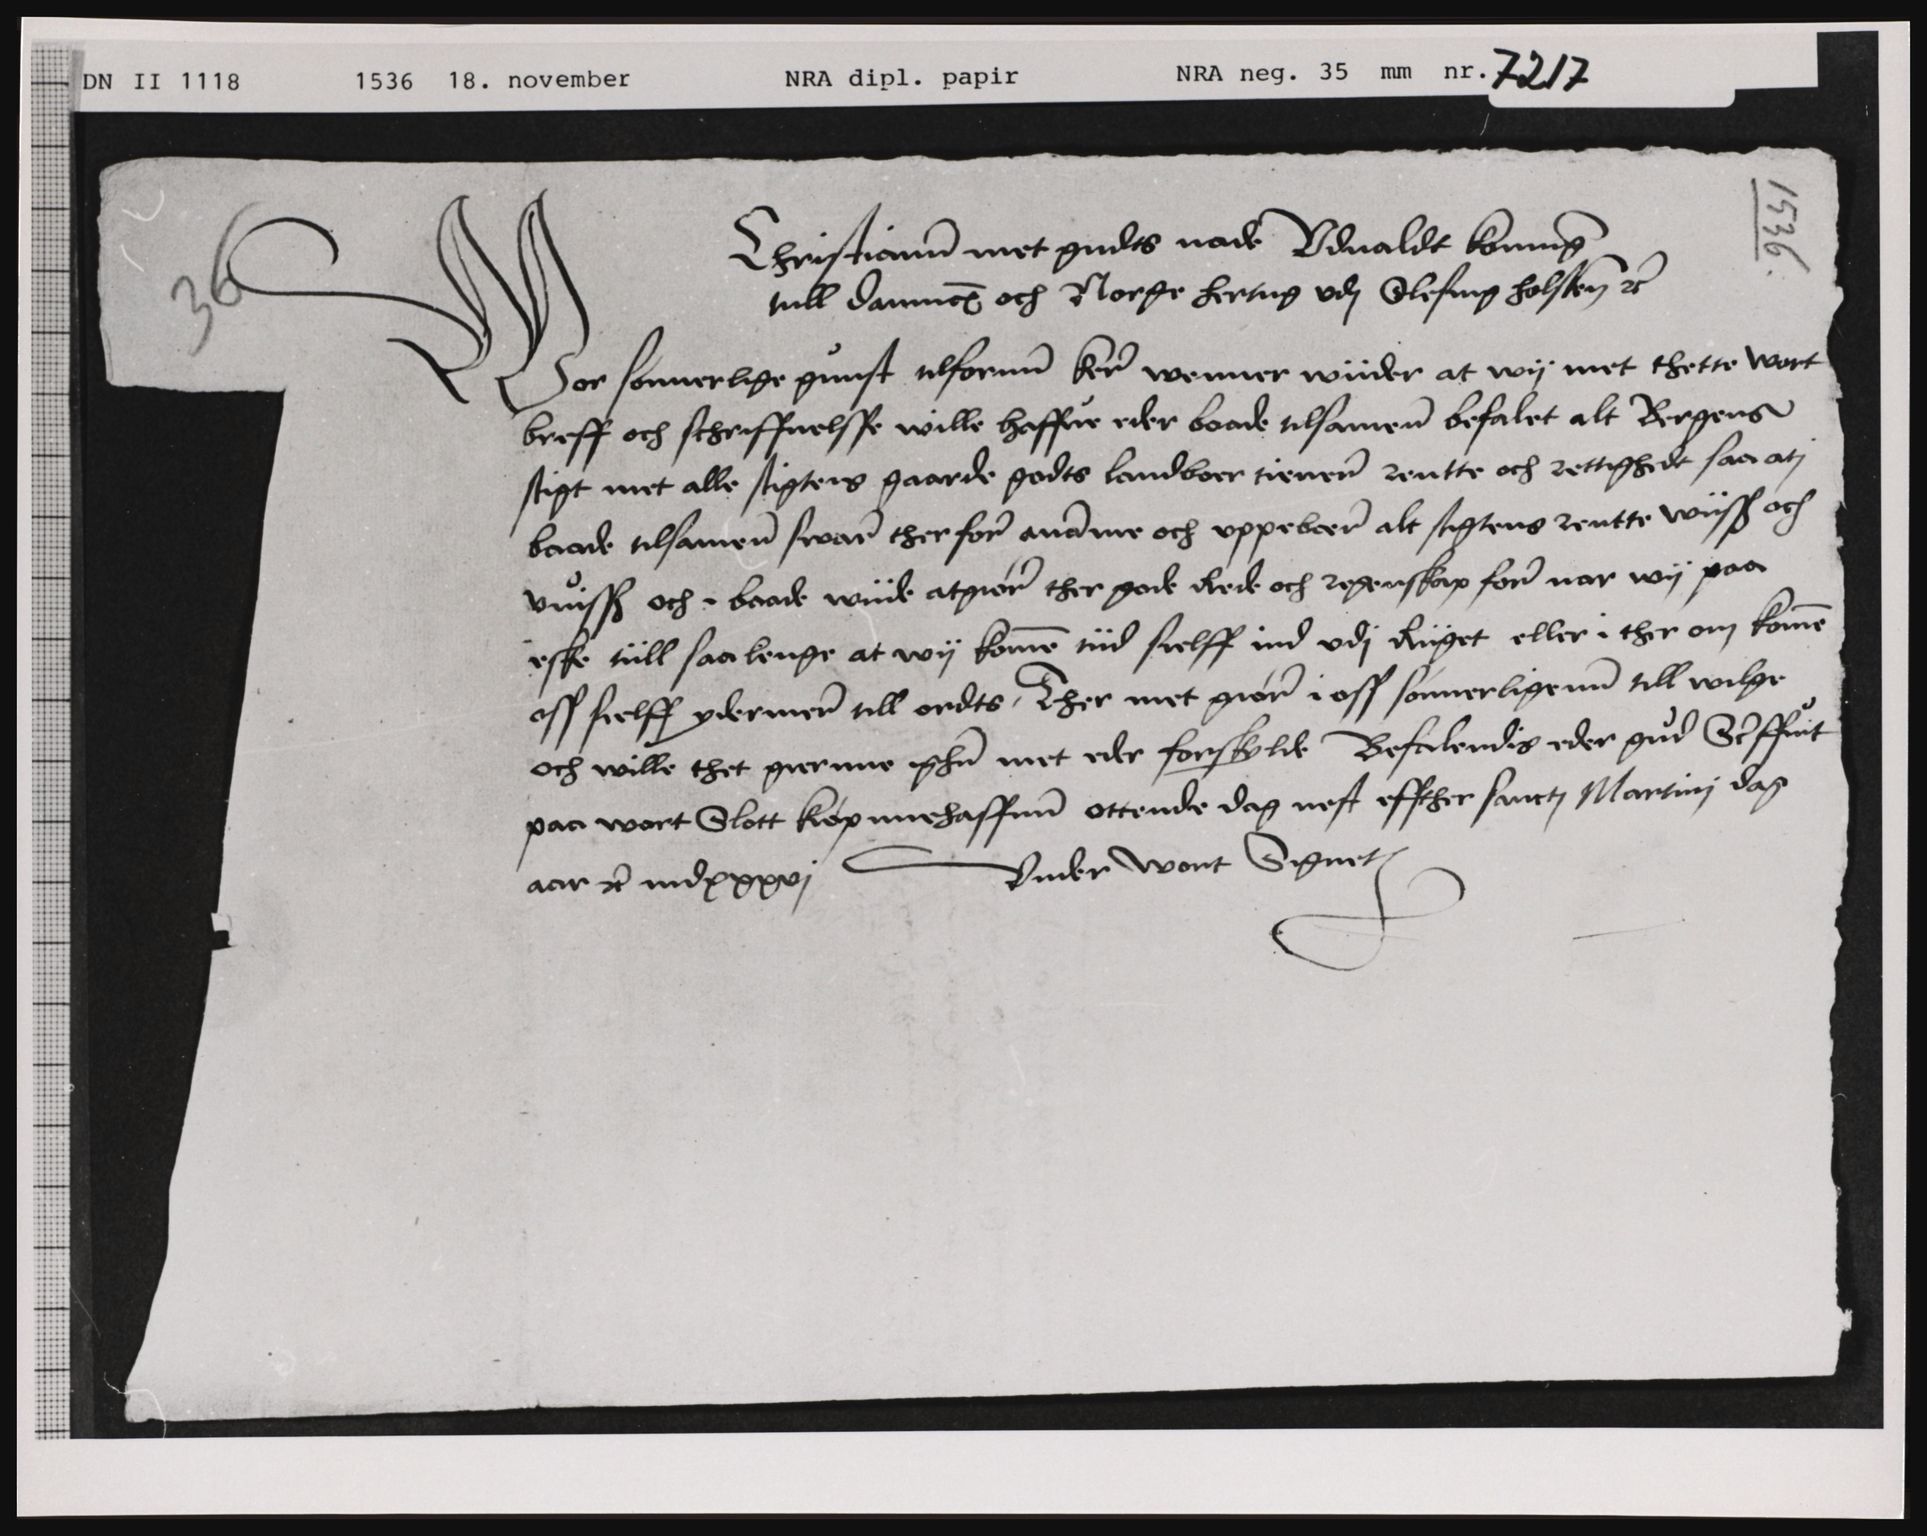 DN II 1118 1536 18. november NRA dipl. papir NRA neg. 35 mm nr. 7217
36
1536.
Christiann̄ met gudts nade Vdualdt konni̅g
till danmc̅k och Norge hertug vdj Slesuig holsten ꝛc̅
Vor sonnerlige gunst tilfornn̄ ker̄ wenner wiider at wij met thette wort
breff och schriffuelsse wille haffue eder baade tilsamen̄ befalet alt Bergens
stigt met alle stigtens gaarde godts landboer tiener̄ rentte och rettighedt saa atj
baade tilsamen̄ swar̄ ther for̄ ana̅me och vppebær̄ alt stigtens rentte wiiss och
vuiss och i baade wiide at giør̄ ther gode Rede och regenskap for̄ nar wij paa
eske tiill saa lenge at wij kom̅e tiid sielff ind vdj Riiget eller i ther om kom̅e
oss sielff ydermer̄ till ordts, Ther met giør̄ i oss sonnerligenn̄ till wilge
och wille thet giernne ighn̄ met eder forskylde Befalendis eder gud Scr̅ffuit
paa wort Slott køpnnehaffnn̄ ottende dag nest effther sanctj Martinj dag
aar ꝛc̅ mdxxxvj Vnder wort Signet